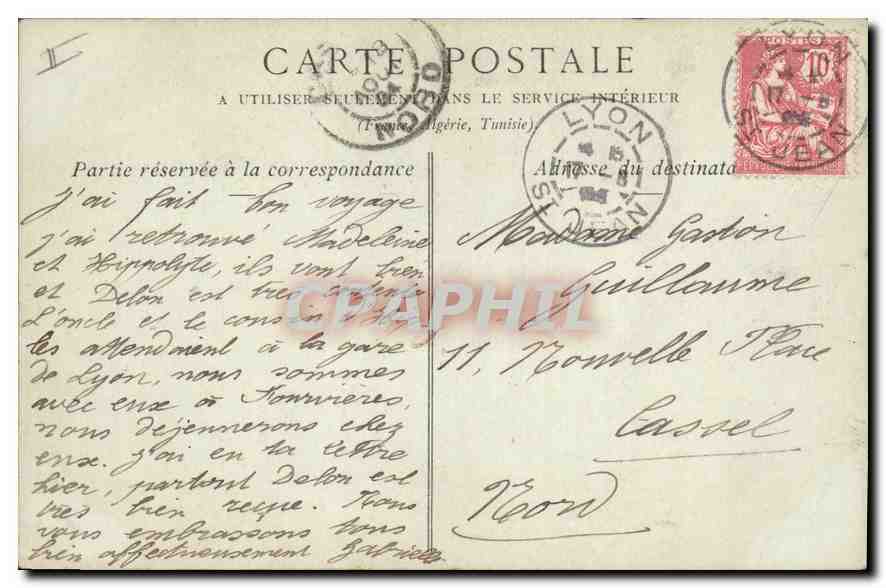 CARTE POSTALE
A UTILISER SEULEMENT DANS LE SERVICE INTÉRIEUR
(France, Algérie, Tunisie)
Partie réservée à la correspondance
Adresse du destinata
POSTES
10
LYON
ST JEAN
LYON
ST JEAN
NORD
J'ai fait bon voyage
j'ai retrouvé Madeleine
et Hippolyte, ils vont bien
et Delon est très
L'oncle et le cousin d'Hip
les attendaient à la gare
de Lyon, nous sommes
avec eux à Fourvières,
nous déjeunerons chez
eux. J'ai eu ta lettre
hier, partout Delon est
très bien reçue. Nous
vous embrassons tous
bien affectueusement Gabrielle
Madame Gaston
Guillaume
11, Nouvelle Place
Cassel
Nord
CPAPHIL